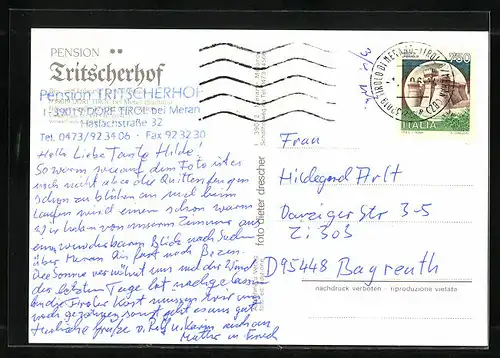 PENSION **
Tritscherhof
Pension TRITSCHERHOF
I-39019 DORF TIROL bei Meran
Haslachstraße 32
Tel. 0473/92 34 06 · Fax 92 32 30
Hallo Liebe Tante Hilde!
So warm wie auf dem Foto ist es
noch nicht aber die Quitten fangen
schon zu blühen an und beim
Laufen wird einem schon warm
Wir haben von unserem Zimmer aus
einen wunderbaren Blick nach Süden
über Meran hin fast nach Bozen.
Die Sonne verwöhnt uns und der Wind
der letzten Tage hat nachgelassen
an die Tiroler Kost müssen wir uns
noch gewöhnen sonst geht es uns gut
Herzliche Grüße v. Karin auch an
foto dieter drescher
TIROLO DI MERANO
750
ITALIA
Frau
Hildegard Arlt
Danziger Str 3-5
Zi 303
D 95448 Bayreuth
nachdruck verboten riproduzione vietato